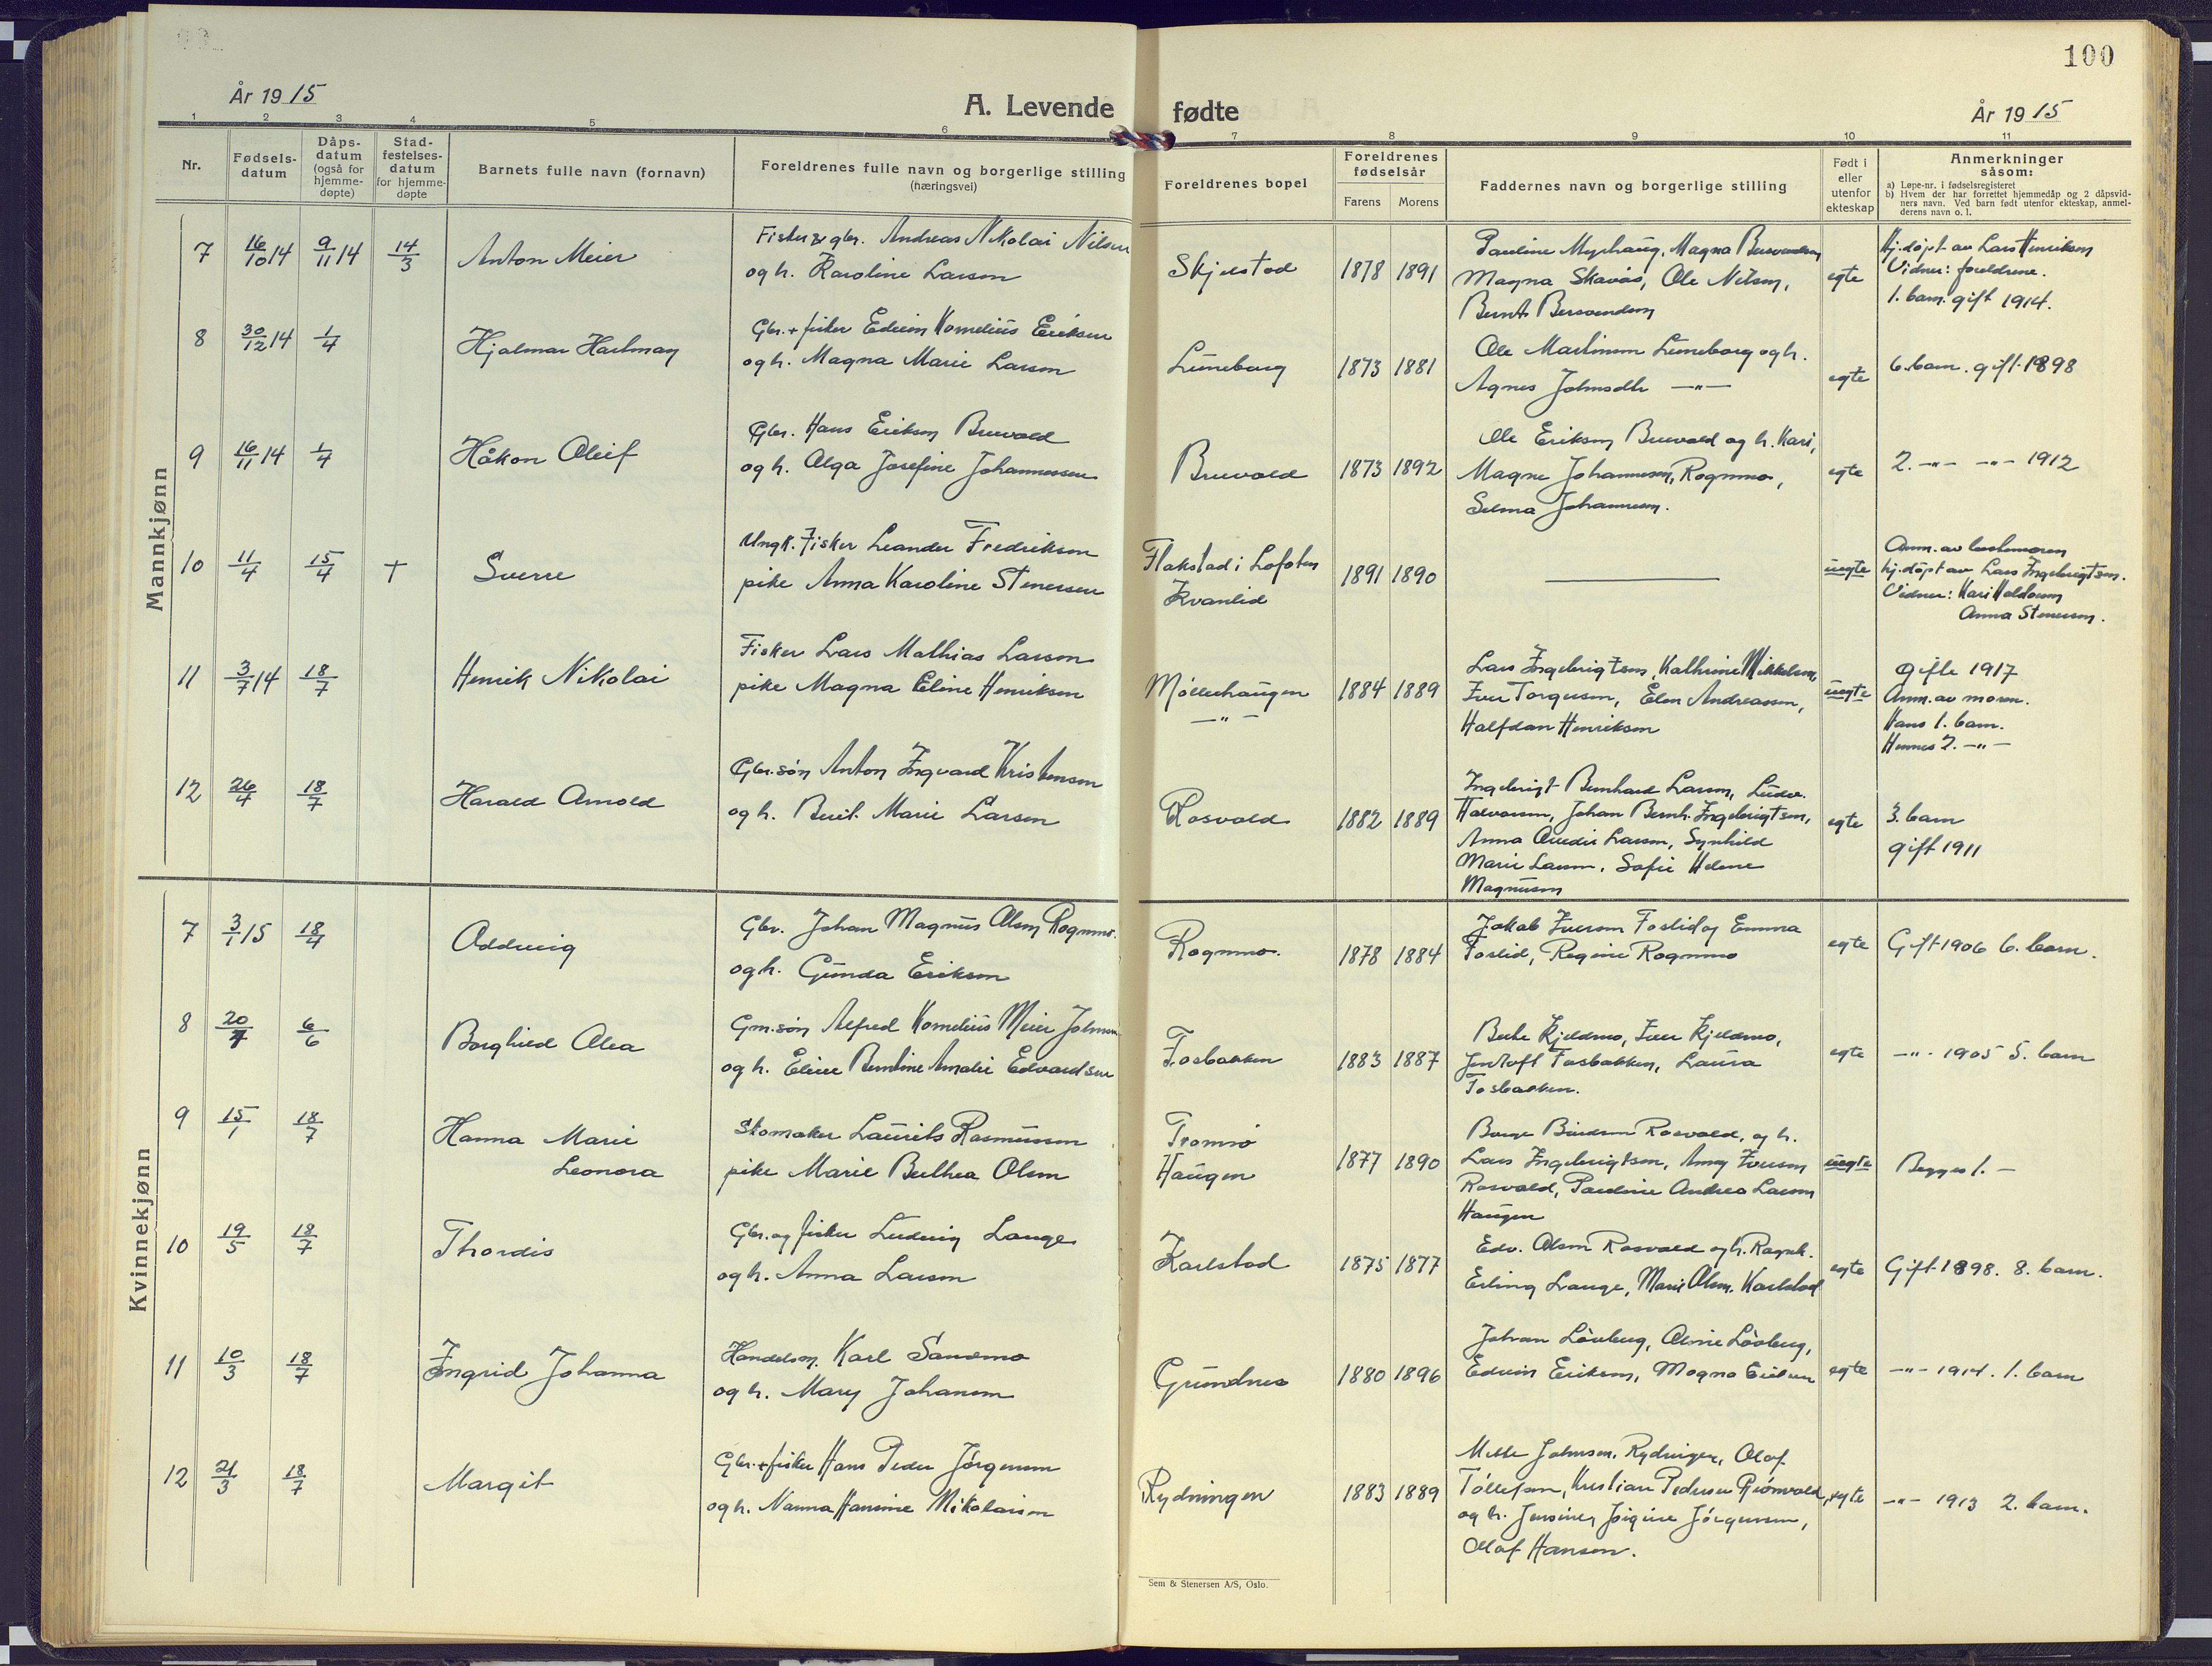 100
År 1915
A. Levende
fødte
År 1915
1 2 3 4 5 6 7 8 9 10 11
Nr.
Fødsels-
datum
Dåps-
datum
(også for
hjemme-
døpte)
Stad-
festelses-
datum
for hjemme-
døpte
Barnets fulle navn (fornavn)
Foreldrenes fulle navn og borgerlige stilling
(næringsvei)
Foreldrenes bopel
Foreldrenes
fødselsår
Farens Morens
Faddernes navn og borgerlige stilling
Født i
eller
utenfor
ekteskap
Anmerkninger
såsom:
a) Løpe-nr. i fødselsregisteret
b) Hvem der har forrettet hjemmedåp og 2 dåpsvid-
ners navn. Ved barn født utenfor ekteskap, anmel-
derens navn o. l.
Mannkjønn
7 16/10 14 9/11 14 14/3 Anton Meier
Fisker & gbr. Andreas Nikolai Nilsen
og h. Karoline Larsen
Skjelstad 1878 1891
Pauline Myrhaug, Magna Bersvendsen
Magna Skavås, Ole Nilsen,
Bernt Bersvendsen
egte
Hj.døpt av Lars Henriksen
Vidner: foreldrene.
1. barn. gift 1914.
8 30/12 14 1/4 Hjalmar Hartman
Gbr. + fisker Edvin Kornelius Eriksen
og h. Magna Marie Larsen
Luneborg 1873 1881
Ole Martinsen Luneborg og h.
Agnes Johnsdtr —"—
egte 6. barn. gift 1898
9 16/11 14 1/4 Håkon Oleif
Gbr. Hans Eriksen Bruvold
og h. Olga Josefine Johannessen
Bruvold 1873 1892
Ole Eriksen Bruvold og h. Kari,
Magne Johannesen, Rognmo,
Selma Johannesen.
egte 2. —"— —"— 1912
10 11/4 15/4 + Sverre
Ungk. Fisker Leander Fredriksen
pike Anna Karoline Stenersen
Flakstad i Lofoten
Kvanlid
1891 1890 ———
uegte
Anm. av
hj. døpt av Lars Ingebrigtsen.
Vidner: Kari Haldorsen
Anna Stenersen.
11 3/7 14 18/7 Henrik Nikolai
Fisker Lars Mathias Larsen
pike Magna Eline Henriksen
Møllerhaugen
—"—
1884 1889
Lars Ingebrigtsen, Kathrine Mikkelsen,
Iver Torgersen, Elen Andreassen,
Halfdan Henriksen
uegte
Gifte 1917
Anm. av moren.
Hans 1. barn.
Hennes 2. —"—
12 26/4 18/7 Harald Arnold
Gbr.søn Anton Ingvard Kristensen
og h. Berit Marie Larsen
Rosvold 1882 1889
Ingebrigt Bernhard Larsen, Ludv.
Halvorsen, Johan Bernh. Ingebrigtsen,
Anna Larsen, Synhild
Marie Larsen, Sofie Helene
Magnussen
egte
3. barn
gift 1911
Kvinnekjønn
7 3/1 15 18/4 Oddveig
Gbr. Johan Magnus Olsen Rognmo.
og h. Gunda Eriksen
Rognmo. 1878 1884
Jakob Iversen Foslid og Emma
Foslid, Regine Rognmo
egte Gift 1906 6. barn.
8 20/4 6/6 Borghild Alea
Gm.søn Alfred Kornelius Meier Johnsen
og h. Eline Berntine Amalie Edvardsen
Fosbakken 1883 1887
Berte Kjeldmo, Iver Kjeldmo,
Jentoft Fosbakken, Laura
Fosbakken.
egte —"— 1905 5. barn
9 15/1 18/7 Hanna Marie
Leonora
Skomaker Laurits Rasmussen
pike Marie Bethea Olsen
Tromsø
Haugen
1877 1890
Rosvold, og h.
Lars Ingebrigtsen, Amy Iversen
Rosvold, Pauline Andrea Larsen
Haugen
uegte Begges 1. —
10 19/5 18/7 Thordis
Gbr. og fisker Ludvig Lange
og h. Anna Larsen
Karlstad 1875 1877
Edv. Olsen Rosvold og h. Ragnh.
Erling Lange, Marie Olsen. Karlstad
egte Gift 1898. 8. barn.
11 10/3 18/7 Ingrid Johanna
Handelsm. Karl Sandmo
og h. Mary Johansen
Grundnes 1880 1896
Johan Løvberg, Løvberg,
Edvin Eriksen, Magna Eriksen
egte —"— 1914. 1. barn
12 21/3 18/7 Margit
Gbr. + fisker Hans Peder Jørgensen
og h. Nanna Hansine Nikolaisen
Rydningen 1883 1889
Mette Johnsen, Rydningen, Olaf
Tollefsen, Kristian Pedersen Grønvold,
og h. Jensine, Jørgine Jørgensen,
Olaf Hansen.
egte —"— 1913 2. barn.
Sem & Stenersen A/S, Oslo.